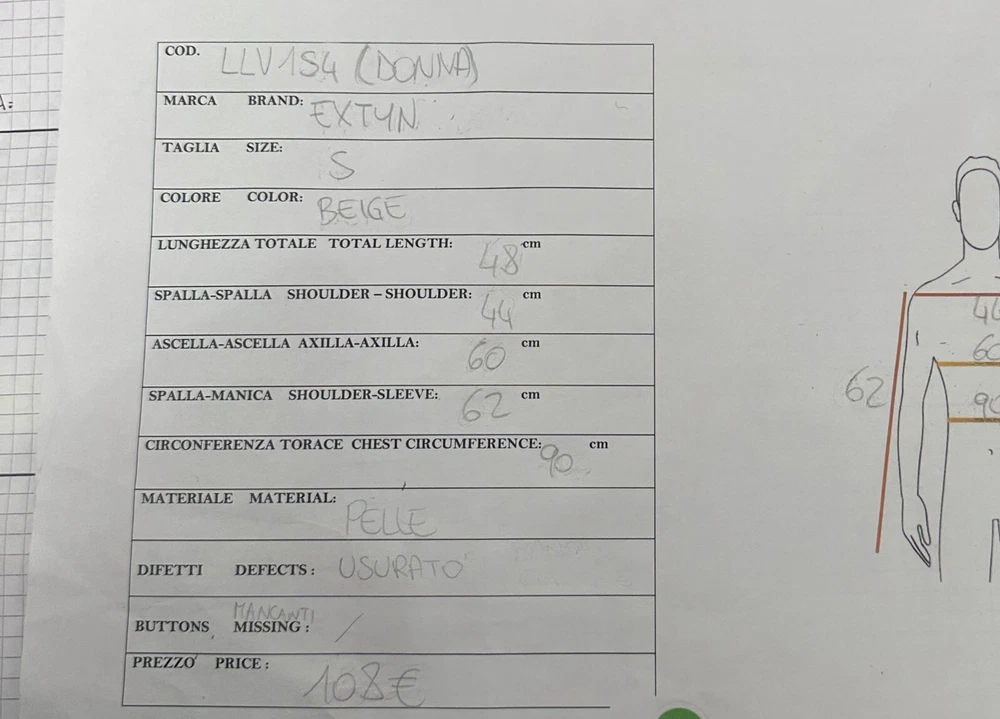 A:
COD. LLV154 (DONNA)
MARCA BRAND: EXTYN
TAGLIA SIZE: S
COLORE COLOR: BEIGE
LUNGHEZZA TOTALE TOTAL LENGTH: 48 cm
SPALLA-SPALLA SHOULDER – SHOULDER: 44 cm
ASCELLA-ASCELLA AXILLA-AXILLA: 60 cm
SPALLA-MANICA SHOULDER-SLEEVE: 62 cm
CIRCONFERENZA TORACE CHEST CIRCUMFERENCE: 90 cm
MATERIALE MATERIAL: PELLE
DIFETTI DEFECTS: USURATO
MANCANTI
BUTTONS MISSING: /
PREZZO PRICE: 108€
44
60
62
90